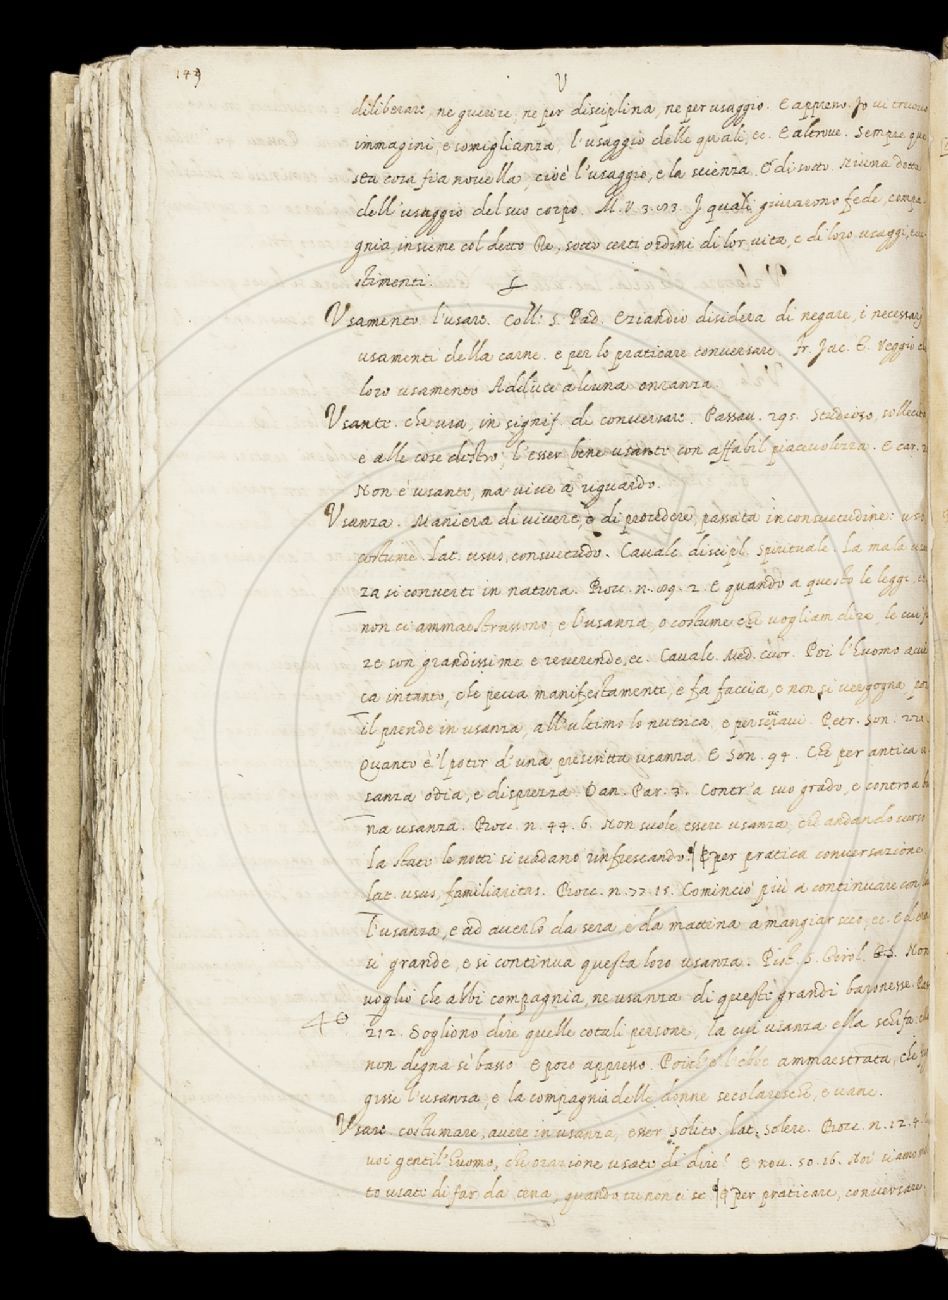 149
V
diliberare, ne guerire, ne per disciplina, ne per usaggio. E appresso. Io vi truovo
immagini, e somiglianza, l'usaggio delle quali, ec. E altrove. Sempre
cosa fia novella, cioè l'usaggio, e la scienza. E di sotto. Niuna dotta
dell'usaggio del suo corpo. M. V. 3. I quali giurarono fede, compa-
gnia, insieme col detto Re, sotto certi ordini di lor vita, e di loro usaggi,
stimenti.
Usamento. l'usare. Coll. S. Pad. Eziandio disidera di negare, i necessarj
usamenti della carne. e per lo praticare conversare. Fr. Jac. T. Veggio
loro usamento Adduce alcuna onranza.
Usante. che usa, in signif. di conversare. Passav. 295. Studioso, sollecito
e alle cose destro, l'esser bene usante con affabil piacevolezza. E car.
Non è usante, ma vive a riguardo.
Usanza. Maniera di vivere, e di procedere, passata in consuetudine: uso
costume. Lat. usus, consuetudo. Cavalc. discipl. spirituale. La mala usan
za si converte in natura. Bocc. n. 2. E quando a questo le leggi,
non ci ammaestrassono, e l'usanza, o costume che vogliam dire, le cui
ze son grandissime e reverende, ec. Cavalc. Med. cuor. Poi l'huomo
ca intanto, che pecca manifestamente, e fa faccia, e non si vergogna, poi
il prende in usanza, all'ultimo lo nutrica, e persevera. Petr. Son.
Quanto è 'l poter d'una prescritta usanza. E Son. 94. Che per antica u
sanza odia, e disprezza. Dan. Par. 3. Contr'a suo grado, e contro a buo
na usanza. Bocc. n. 44. 6. Non suole essere usanza, che andando verso
la state le notti si vadano rinfrescando. ¶ E per pratica conversazione
lat. usus, familiaritas. Bocc. n. 77. 15. Cominciò più a continuare con lui
l'usanza, e ad averlo da sera, e da mattina a mangiar seco, ec. E
si grande, e si continua questa loro usanza. Pist. S. Girol. Non
voglio che abbi compagnia, ne usanza di queste grandi baronesse.
40
212. Sogliono dire quelle cotali persone, la cui usanza ella schifa,
non degna sì basso. E poco appresso. Poichè l'ebbe ammaestrata, che
gisse l'usanza, e la compagnia delle donne secolaresche, e vane.
Usare. costumare, avere in usanza, esser solito. lat. solere. Bocc. n. 12. 4.
voi gentil'huomo, che orazione usate di dire? E nov. 50. 16. Noi siamo
to usati di far da cena, quando tu non ci se. ¶ E per praticare, conversare.